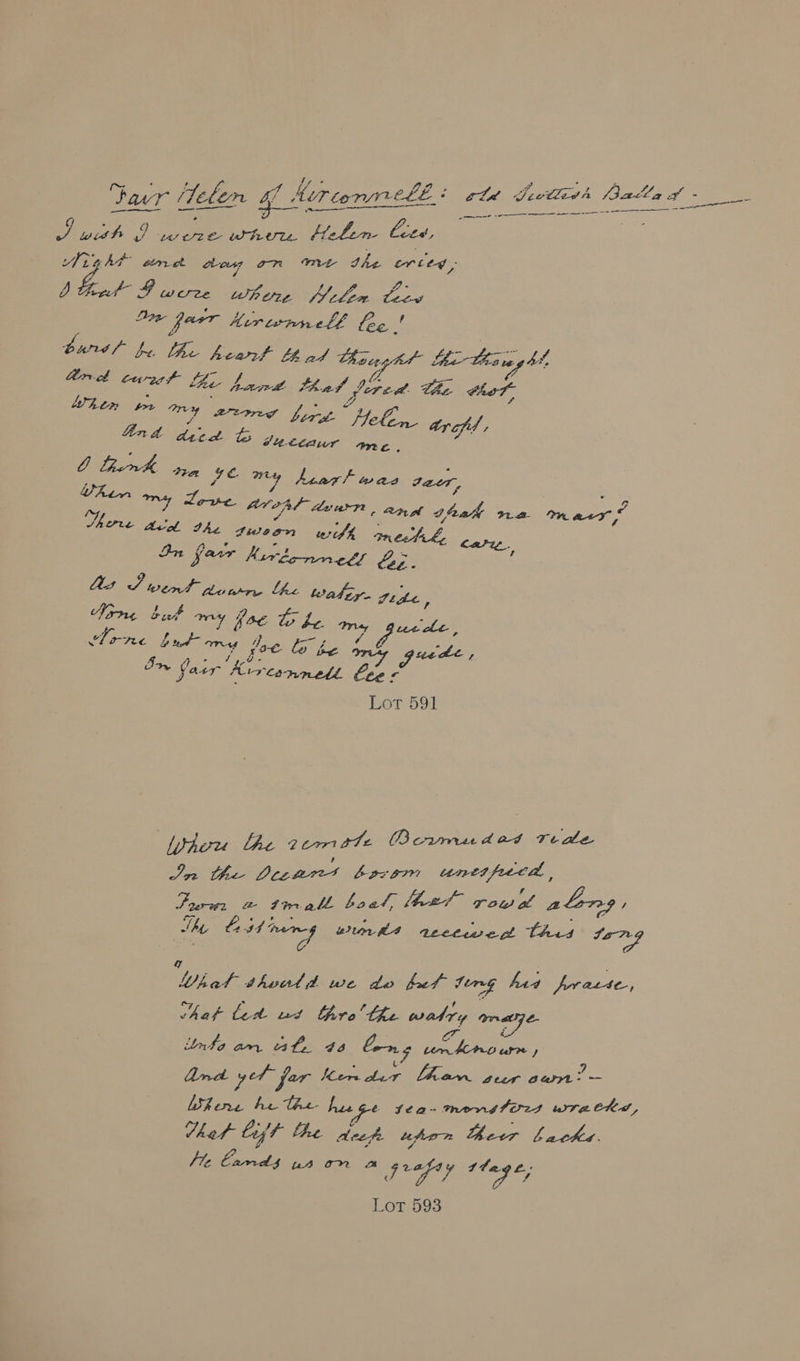 Fair Helen of Kirconnell : old Scottish Ballad -
I wish I were where Helen lies,
Night and day on me she cries;
O that I were where Helen lies
On fair Kirconnell lee!
Curst be the heart that thought the thought,
And curst the hand that fired the shot,
When in my arms bird Helen dropt,
And died to succour me.
O think na ye my heart was sair,
When my Love dropt down, and spak na mair?
There did she swoon with meikle care,
On fair Kirconnell lee.
As I went down the water-side,
None but my foe to be my guide,
None but my foe to be my guide,
On fair Kirconnell lee
LOT 591
Where the remote Bermudas ride
In the Ocean's bosom unespied,
From a small boat, that row'd along,
The listning winds received this song
What should we do but sing his praise,
That led us thro' the watry maze
Unto an isle so long unknown,
And yet far kinder than our own? -
Where he the huge sea-monsters wracks,
That lift the deep upon their backs.
He lands us on a grassy stage;
LOT 593